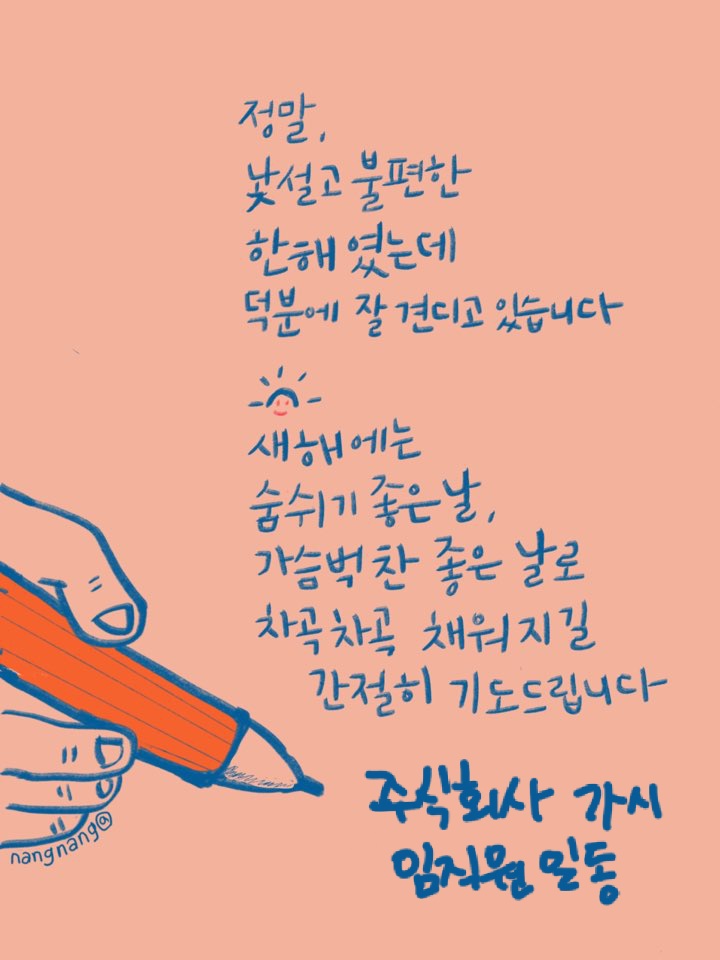 정말,
낯설고 불편한
한해였는데
덕분에 잘 견디고 있습니다
새해에는
숨쉬기 좋은날,
가슴벅찬 좋은 날로
차곡차곡 채워지길
간절히 기도드립니다
주식회사 가시
임직원 일동
nangnang@